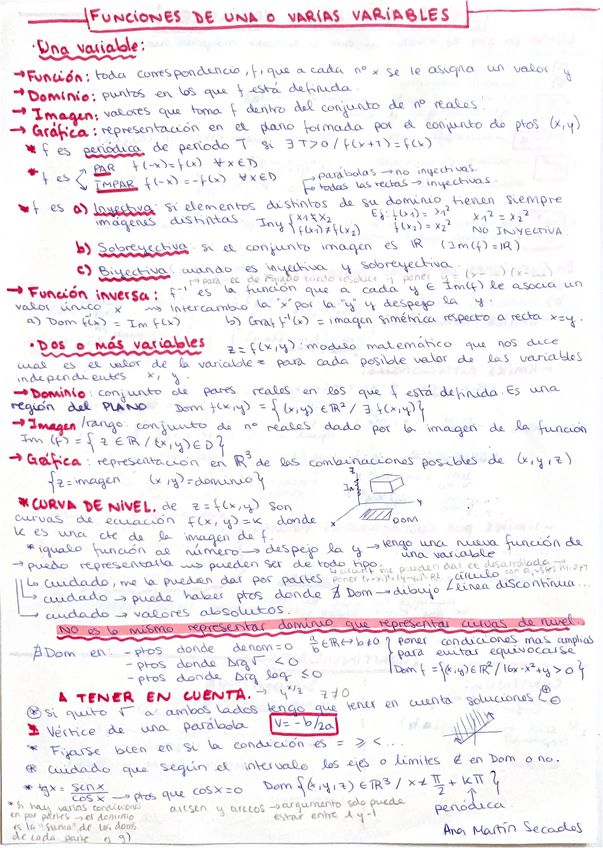 FUNCIONES DE UNA O VARIAS VARIABLES
· Una variable:
→ Función: toda correspondencia, f, que a cada nº x se le asigna un valor y
→ Dominio: puntos en los que f está definida.
→ Imagen: valores que toma f dentro del conjunto de nº reales.
→ Gráfica: representación en el plano formada por el conjunto de ptos (x,y)
* f es periódica de periodo T si ∃ T>0 / f(x+T) = f(x)
* f es PAR f(-x)=f(x) ∀x∈D
IMPAR f(-x)=-f(x) ∀x∈D
parábolas → no inyectivas.
todas las rectas → inyectivas.
* f es a) Inyectiva: si elementos distintos de su dominio tienen siempre
imágenes distintas Iny { x1≠x2 f(x1)≠f(x2) Ej: f(x1) = x1² f(x2) = x2² x1² = x2² NO INYECTIVA
b) Sobreyectiva: si el conjunto imagen es ℝ (Im(f)=ℝ)
c) Biyectiva: cuando es inyectiva y sobreyectiva.
→ Función inversa: f⁻¹ es la función que a cada y ∈ Im(f) le asocia un
valor único x → Intercambio la "x" por la "y" y despejo la y.
a) Dom f⁻¹(x) = Im f(x) b) Graf f⁻¹(x) = imagen simétrica respecto a recta x=y.
· Dos o más variables z = f(x,y): modelo matemático que nos dice
cual es el valor de la variable z para cada posible valor de las variables
independientes x, y.
→ Dominio: conjunto de pares reales en los que f está definida. Es una
región del PLANO Dom f(x,y) = {(x,y) ∈ ℝ² / ∃ f(x,y)}
→ Imagen/rango: conjunto de nº reales dado por la imagen de la función
Im (f) = { z ∈ ℝ / (x,y) ∈ D }
→ Gráfica: representación en ℝ³ de las combinaciones posibles de (x,y,z)
{z = imagen (x,y) = dominio}
z
Im
y
x
DOM
* CURVA DE NIVEL. de z = f(x,y) son
curvas de ecuación f(x,y) = K donde
K es una cte de la imagen de f.
* igualo función al número → despejo la y → tengo una nueva función de
una variable
→ puedo representarla → pueden ser de todo tipo.
→ cuidado, me la pueden dar por partes
→ cuidado → puede haber ptos donde ∄ Dom → dibujo línea discontinua...
→ cuidado → valores absolutos.
NO ES lo mismo representar dominio que representar curvas de nivel.
∄ Dom en: - ptos donde denom = 0 a/b ∈ ℝ ↔ b≠0
- ptos donde Arg √ < 0
- ptos donde Arg log ≤ 0
poner condiciones más amplias
para evitar equivocarse
Dom f = {(x,y) ∈ ℝ² / 16x - x² + y > 0}
A TENER EN CUENTA. → y^x/z z≠0
* si quito √ a ambos lados tengo que tener en cuenta soluciones ⊕ ⊖
* Vértice de una parábola V = -b/2a
* Fijarse bien en si la condición es = ≥ < ...
* cuidado que según el intervalo los ejes o límites ∉ en Dom o no.
* tgx = senx/cosx → ptos que cosx=0 Dom {(x,y,z) ∈ ℝ³ / x ≠ π/2 + kπ}
periódica
arcsen y arccos → argumento solo puede
estar entre 1 y -1
* si hay varias condiciones
en por partes → el dominio
es la "suma" de los doms
de cada parte
Ana Martín Secades